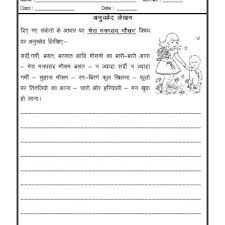 Class :
Date :
अनुच्छेद लेखन
दिए गए संकेतों के आधार पर 'मेरा मनपसंद मौसम' विषय
पर अनुच्छेद लिखिए-
सर्दी, गर्मी, बसंत, बरसात आदि मौसमों का बारी-बारी आना
- मेरा मनपसंद मौसम बसंत - न ज्यादा सर्दी न ज्यादा
गर्मी - सुहाना मौसम - रंग-बिरंगे फूल खिलना - फूलों
पर तितलियों का आना - चारों ओर हरियाली - मन खुश
हो जाना।